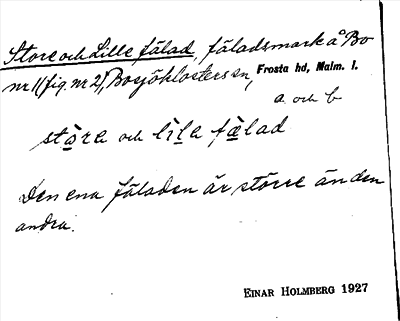 Store och Lille fälad, fäladsmark å Bo
nr 1 (fig. nr 2), Bosjöklosters sn, Frosta hd, Malm. l.
a och b
stǫ̀rɛ och lìlɛ fę̀lad
Den ena fäladen är större än den
andra.
EINAR HOLMBERG 1927